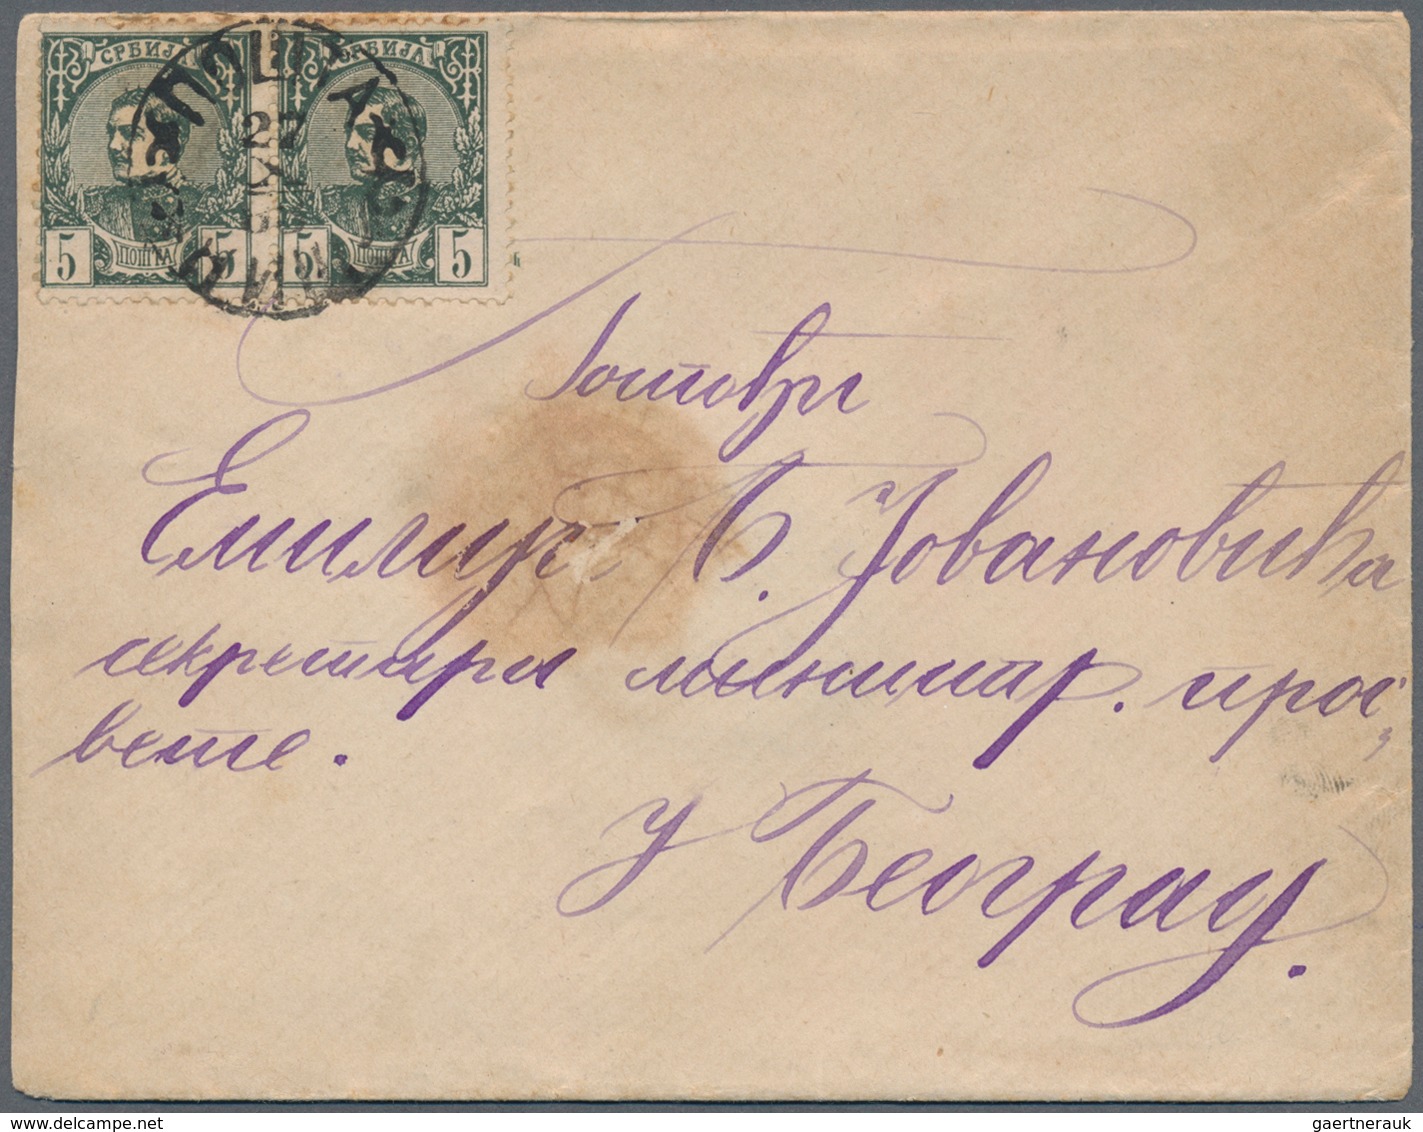 СРБИЈА СРБИЈА
ПОШТА
27
X
5 ПОШТА 5 5 ПОШТА 5
Госпођи
Емилији Б. Јовановића
секретара министр. прос„
вете.
у Београд.
gaertnerauk